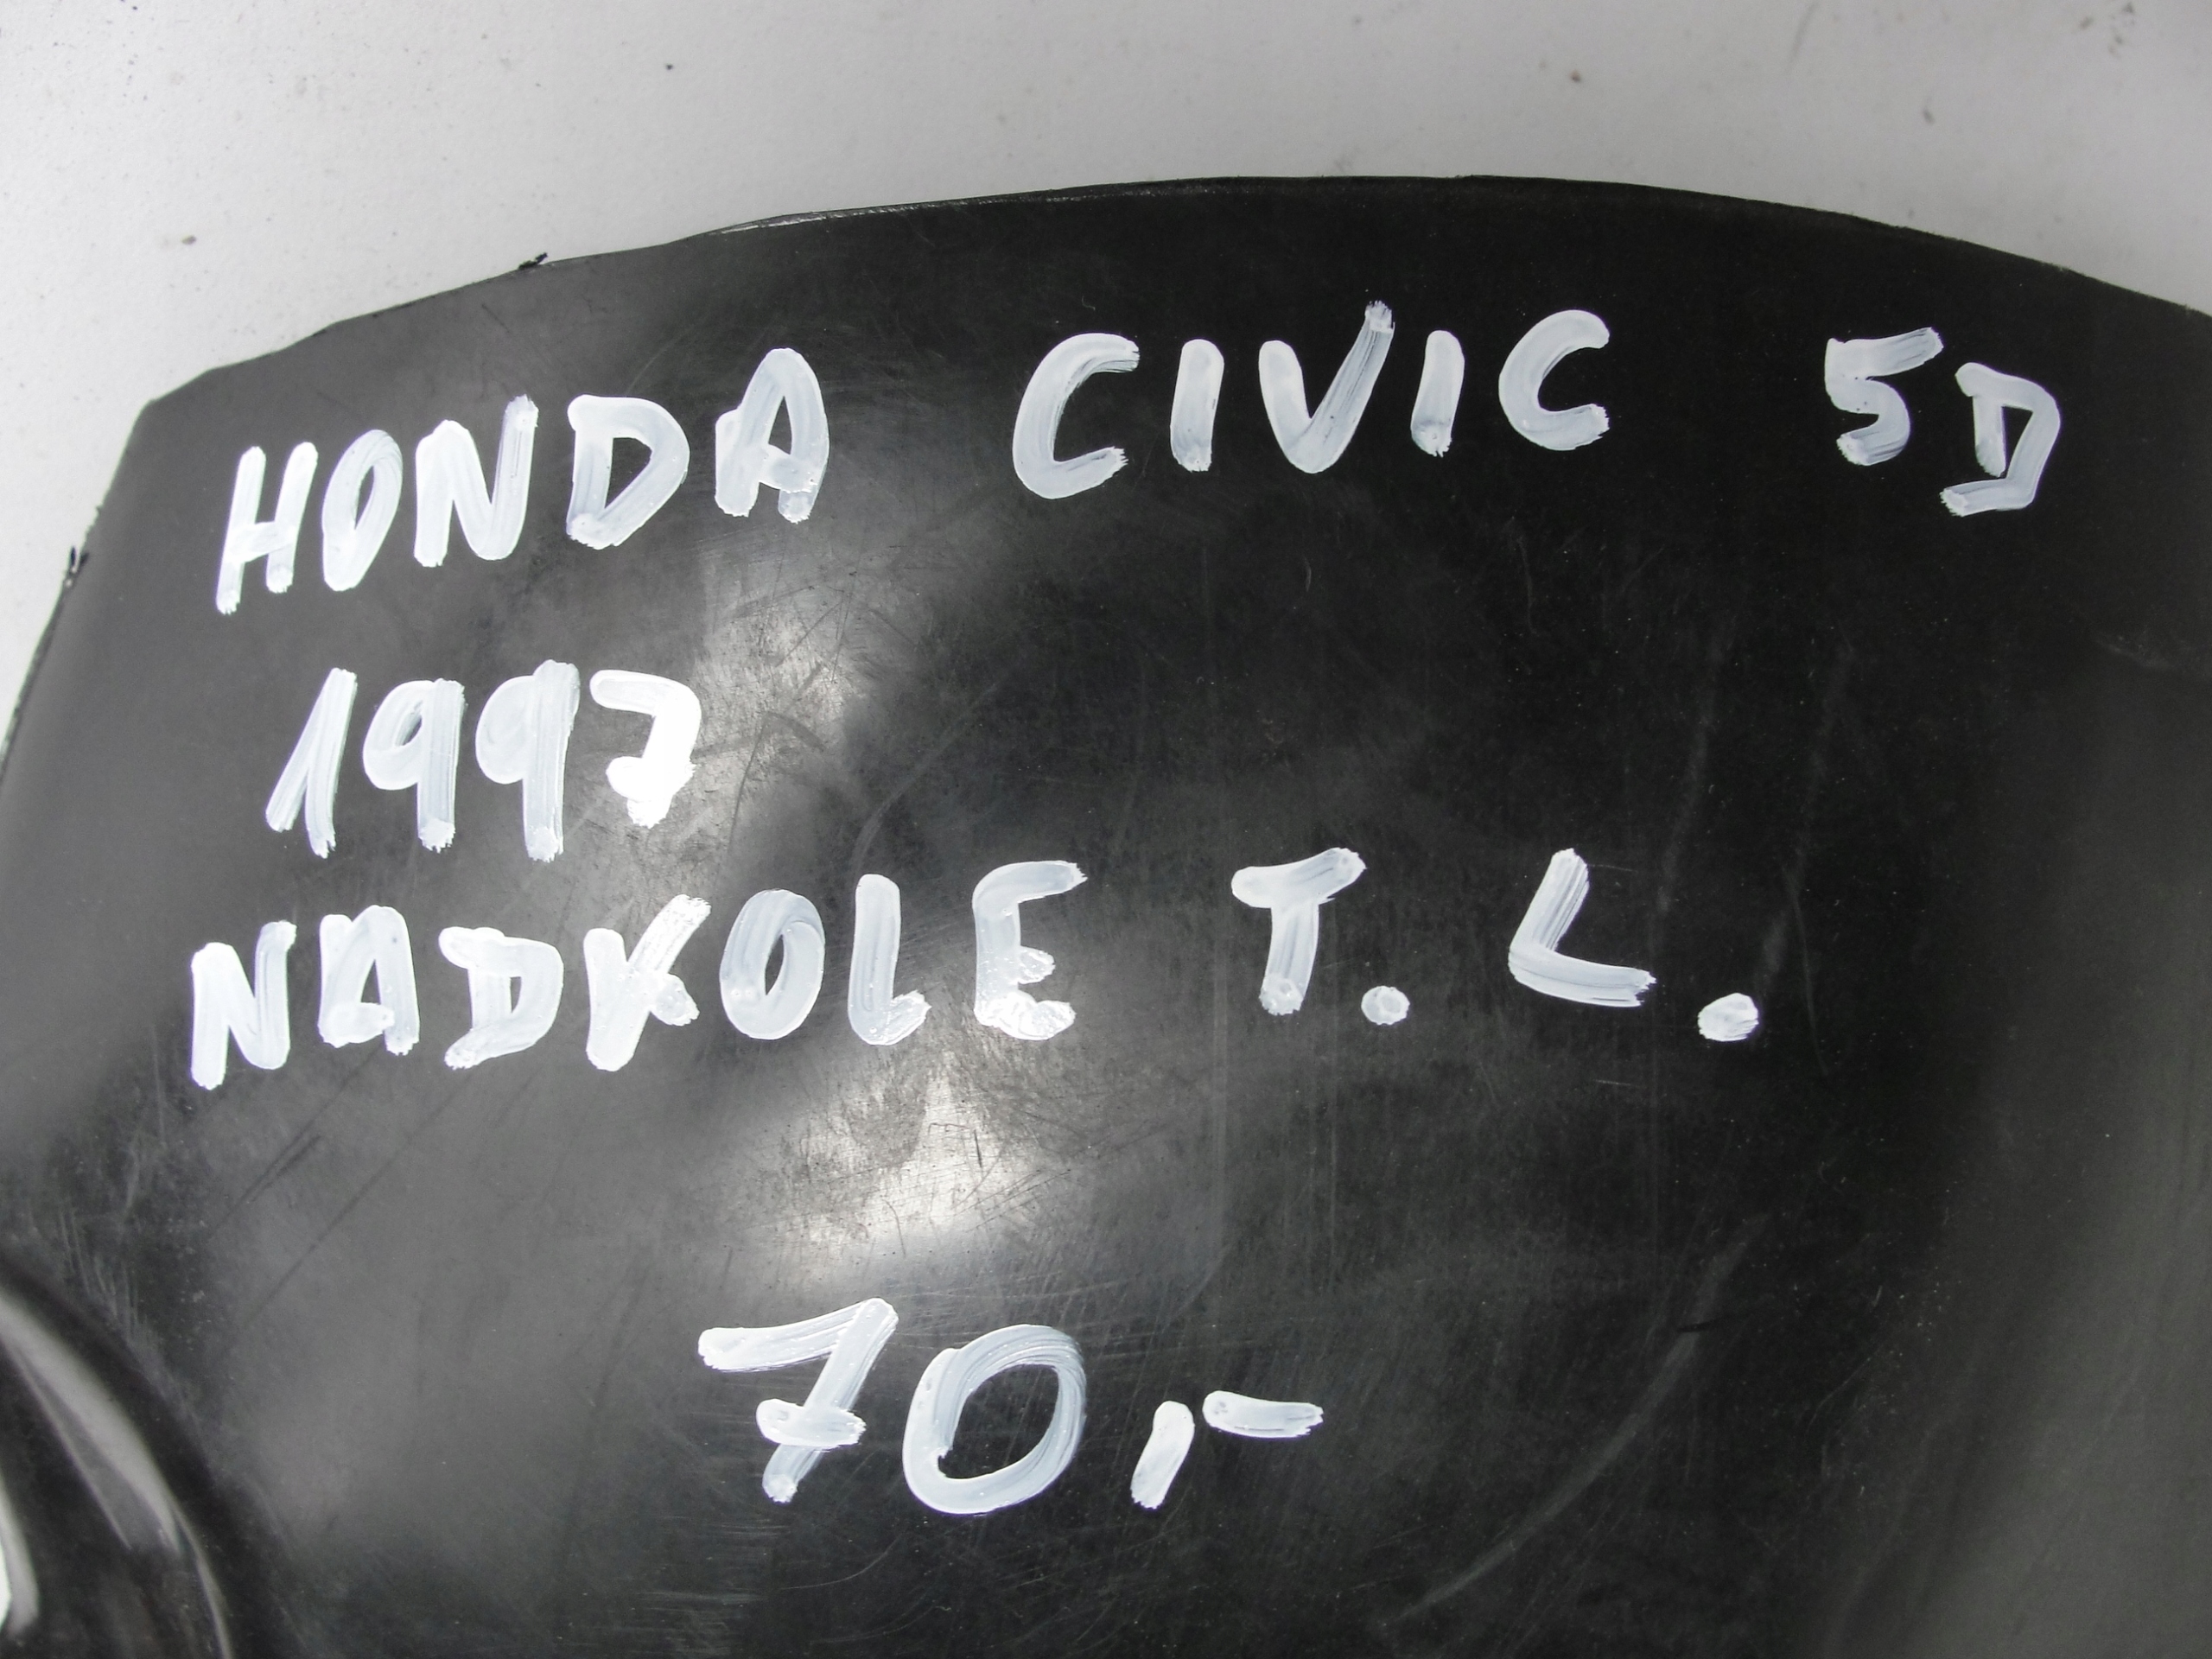 HONDA CIVIC 5D
1997
NADKOLE T. L.
70,-